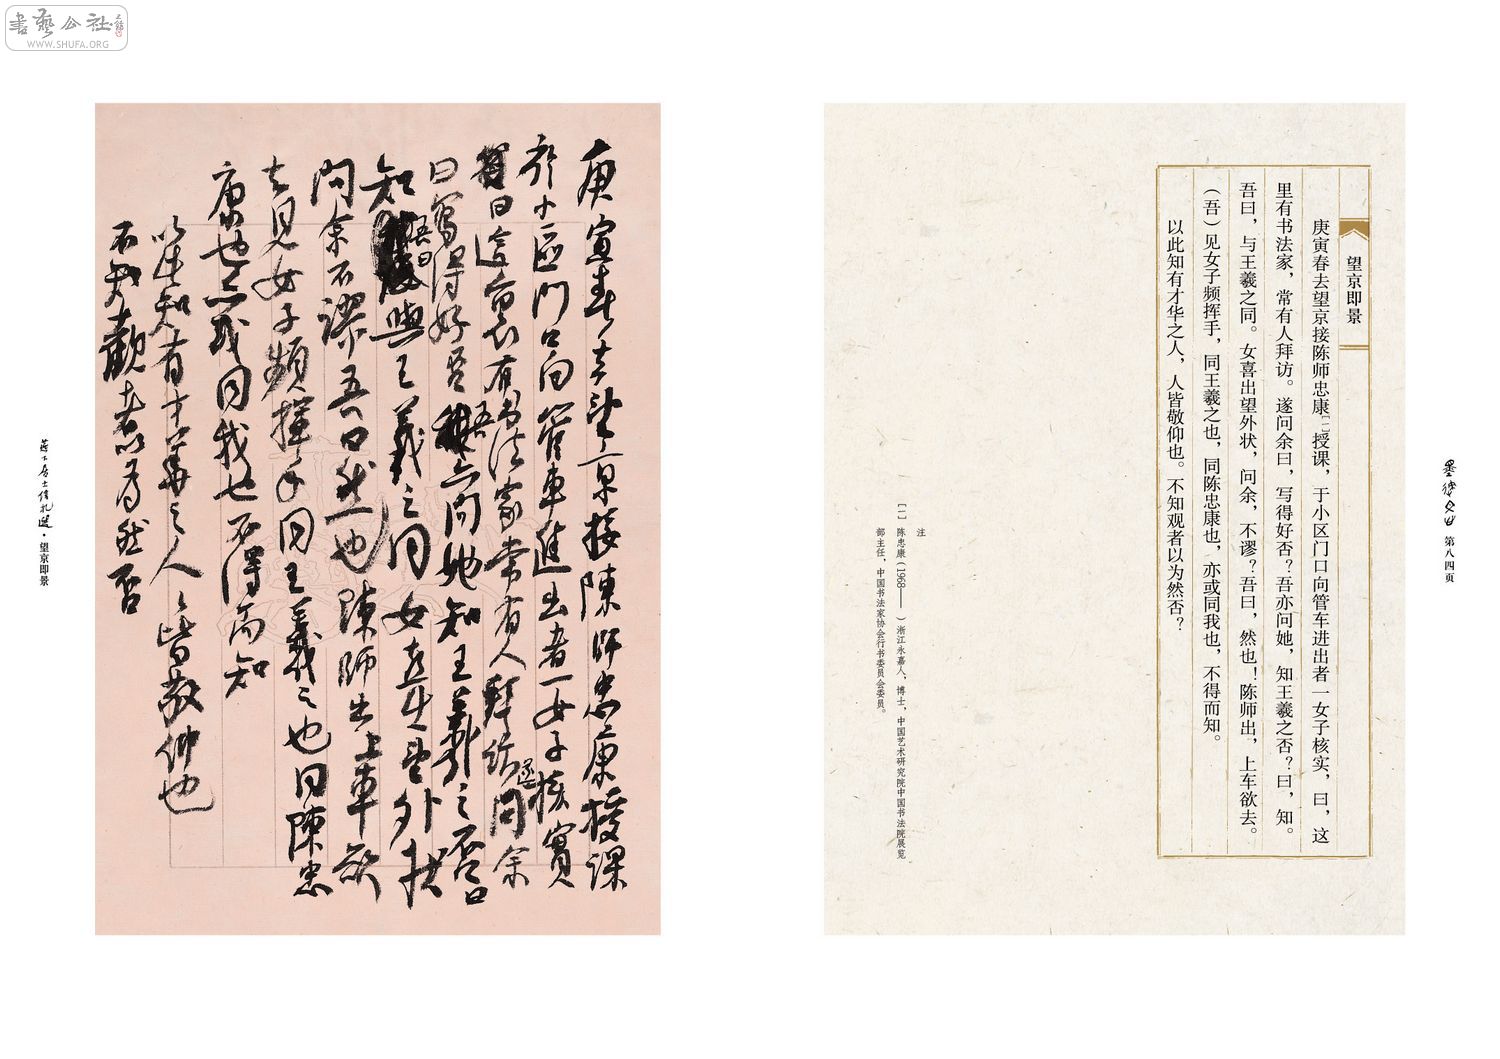 書藝公社
WWW.SHUFA.ORG
第八四页
望京即景
庚寅春去望京接陈师忠康[一]授课，于小区门口向管车进出者一女子核实，曰，这
里有书法家，常有人拜访。遂问余曰，写得好否？吾亦问她，知王羲之否？曰，知。
吾曰，与王羲之同。女喜出望外状，问余，不谬？吾曰，然也！陈师出，上车欲去。
（吾）见女子频挥手，同王羲之也，同陈忠康也，亦或同我也，不得而知。
以此知有才华之人，人皆敬仰也。不知观者以为然否？
注
[一] 陈忠康（1968—— ）浙江永嘉人，博士，中国艺术研究院中国书法院展览
部主任，中国书法家协会行书委员会委员。
庚寅春去望京接陳師忠康授課
於小區門口向管車進出者一女子核實
曰這裏有书法家常有人拜访遂问余
曰寫得好否吾亦问她知王羲之否曰
知吾曰與王羲之同女喜出望外狀
问余不謬吾曰然也陳師出上車欲
去見女子頻揮手同王羲之也同陳忠
康也亦或同我也不得而知
以此知有才華之人人皆敬仰也
不知觀者以为然否
居士信札選·望京即景